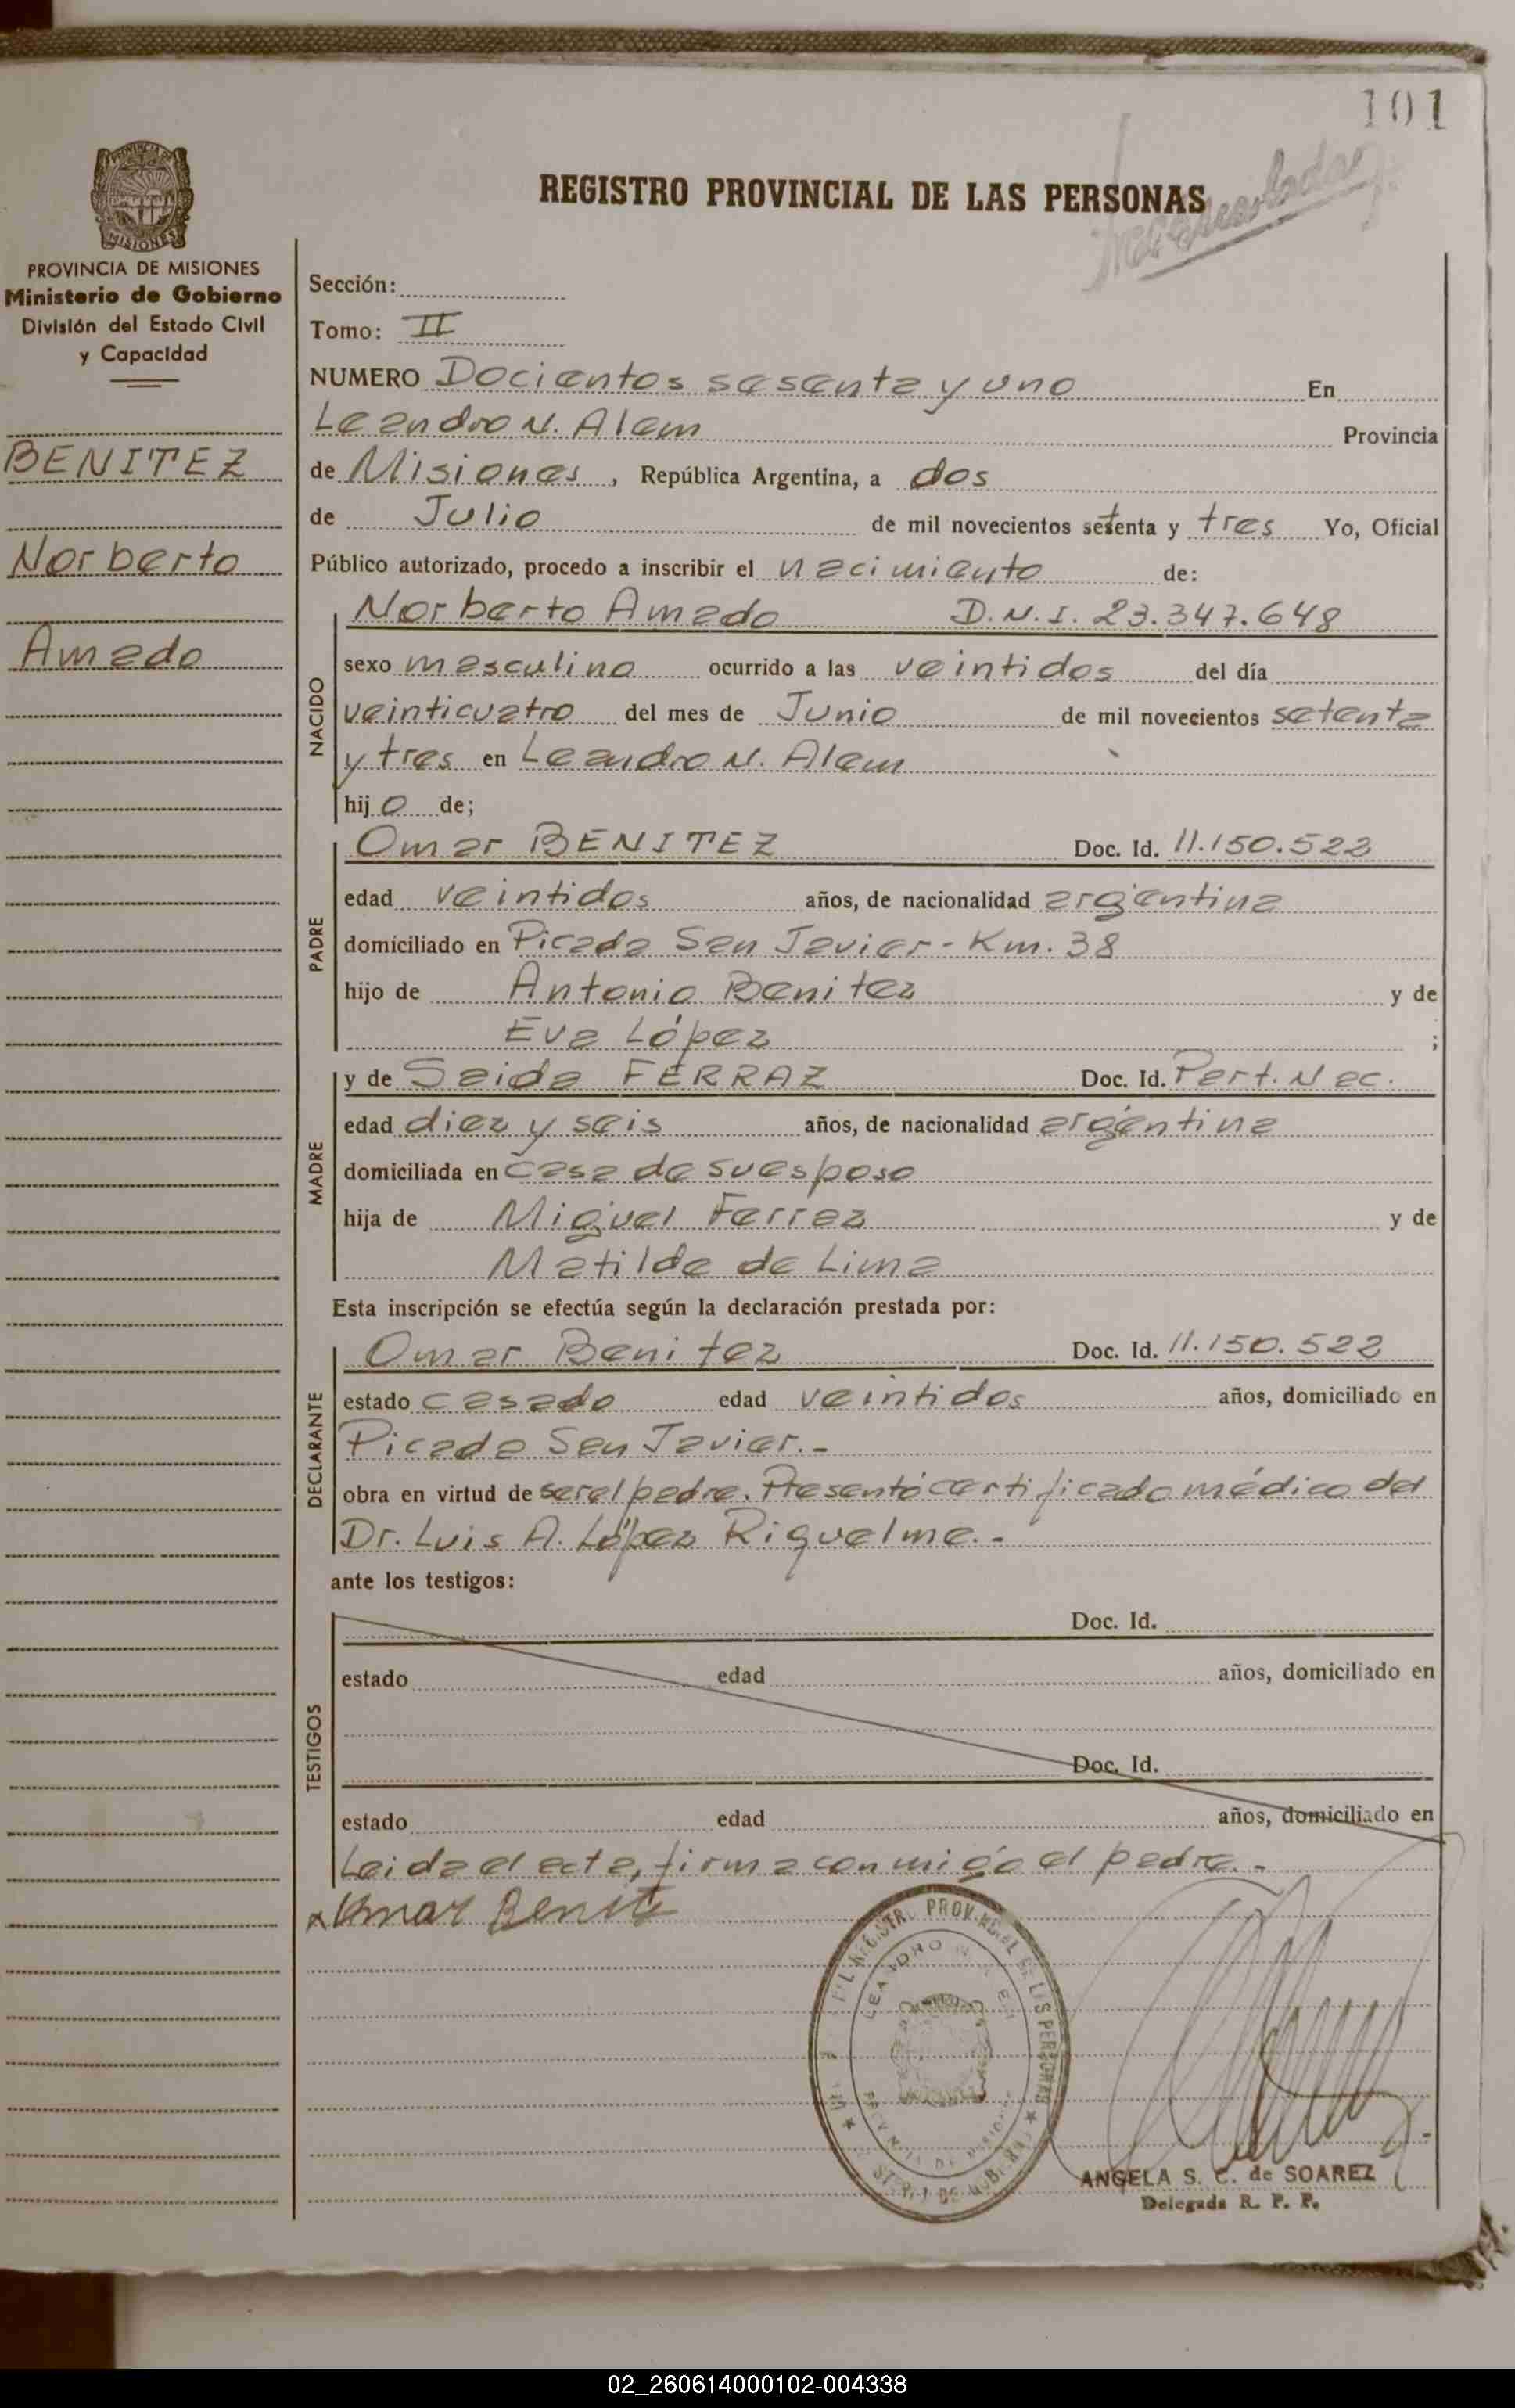 101
REGISTRO PROVINCIAL DE LAS PERSONAS
PROVINCIA DE MISIONES
Ministerio de Gobierno
División del Estado Civil
y Capacidad
BENITEZ
Norberto
Amado
Sección:
Tomo: II
NUMERO Docientos sesenta y uno En
Leandro N. Alem Provincia
de Misiones, República Argentina, a dos
de Julio de mil novecientos setenta y tres Yo, Oficial
Público autorizado, procedo a inscribir el nacimiento de:
NACIDO
Norberto Amado D.N.I. 23.347.648
sexo masculino ocurrido a las veintidos del día
veinticuatro del mes de Junio de mil novecientos setenta
y tres en Leandro N. Alem
hijo de;
PADRE
Omar BENITEZ Doc. Id. 11.150.522
edad veintidos años, de nacionalidad argentina
domiciliado en Picada San Javier - Km. 38
hijo de Antonio Benitez y de
Eva López ;
MADRE
y de Saida FERRAZ Doc. Id. Pert. Nac.
edad diez y seis años, de nacionalidad argentina
domiciliada en casa de su esposo
hija de Miguel Ferraz y de
Matilde de Lima
Esta inscripción se efectúa según la declaración prestada por:
DECLARANTE
Omar Benitez Doc. Id. 11.150.522
estado casado edad veintidos años, domiciliado en
Picada San Javier.-
obra en virtud de ser el padre. Presentó certificado médico del
Dr. Luis A. López Riquelme.-
ante los testigos:
TESTIGOS
Doc. Id.
estado edad años, domiciliado en
Doc. Id.
estado edad años, domiciliado en
Leida el acta, firma conmigo el padre.-
x Omar Benitez
ANGELA S. C. de SOAREZ
Delegada R. P. P.
02_260614000102-004338